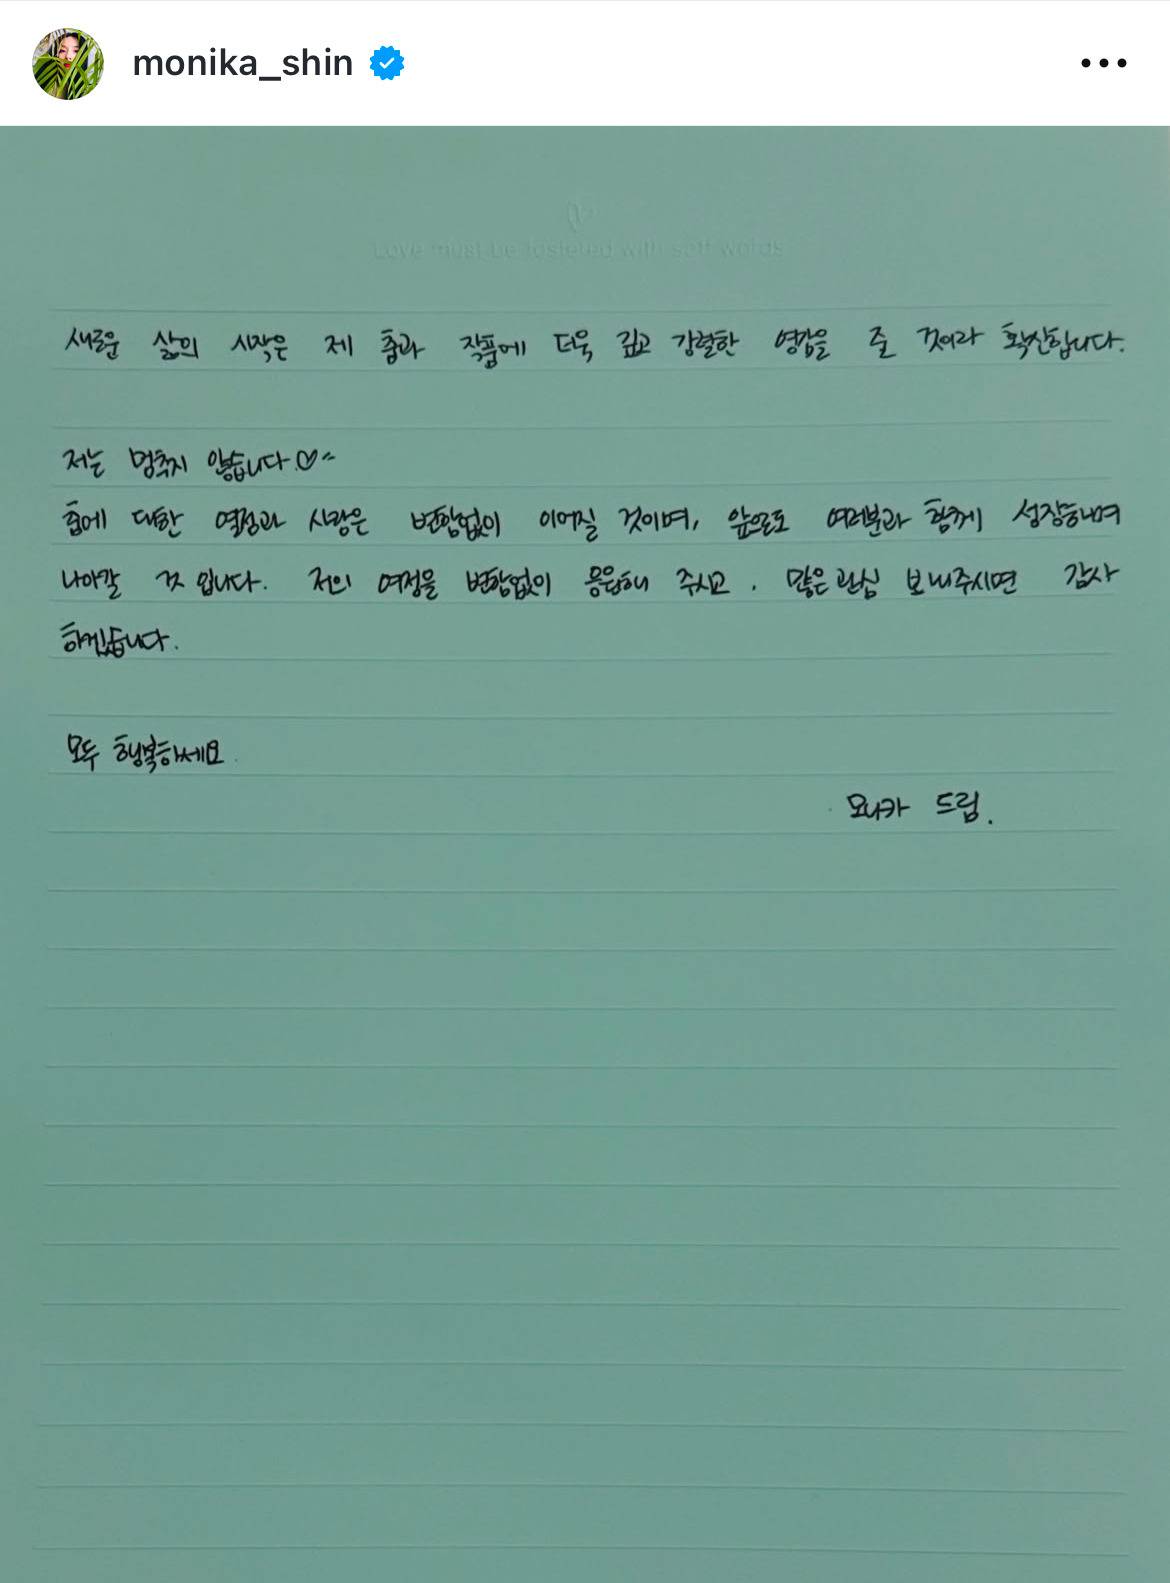 monika_shin
Love must be fostered with soft words
새로운 삶의 시작은 제 춤과 작품에 더욱 깊고 강렬한 영감을 줄 것이라 확신합니다.
저는 멈추지 않습니다.♡~
춤에 대한 열정과 사랑은 변함없이 이어질 것이며, 앞으로도 여러분과 함께 성장하며
나아갈 것 입니다. 저의 여정을 변함없이 응원해 주시고, 많은 관심 보내주시면 감사
하겠습니다.
모두 행복하세요.
모니카 드림.